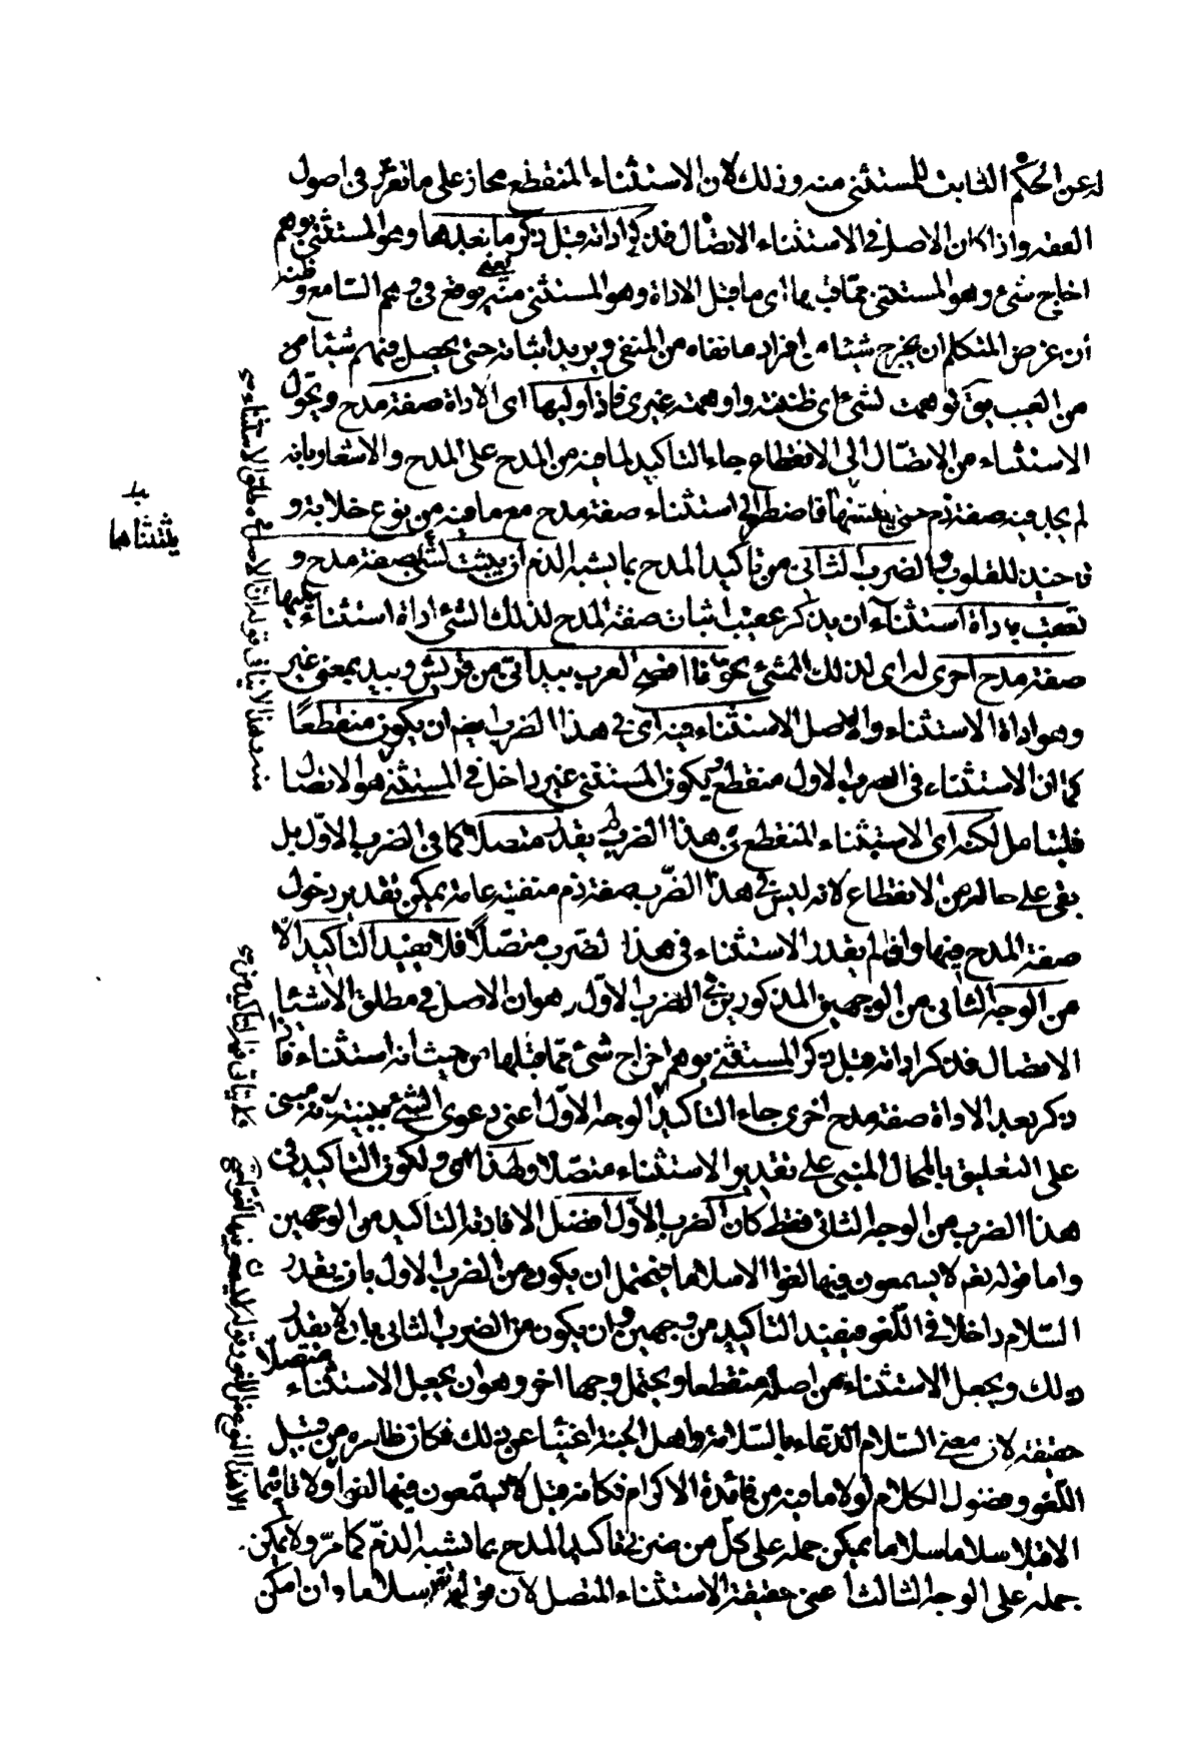 له عن الحكم الثابت للمستثنى منه وذلك لان الاستثناء المنقطع مجاز على ما تقرر فى اصول
الفقه واذا كان الاصل فى الاستثناء الاتصال فذكر اداته قبل ذكر ما بعدها وهو المستثنى يوهم
اخراج شئ وهو المستثنى مما قبلها اى ما قبل الاداة وهو المستثنى منه يعنى يوقع فى وهم السامع وظنه
أن غرض المتكلم ان يخرج شيئا من افراد ما نفاه من المنفى ويريد اثباته حتى يحصل فيهم شيئا من
من العيب يق توهمت لشئ اى ظننته واوهمته غيرى فاذا وليها اى الاداة صفة مدح وتحول
الاستثناء من الاتصال الى الانقطاع جاء التأكيد لما فيه من المدح على المدح والاشعار بانه
لم يجد فيه صفة ذم حتى فاضطر الى استثناء صفة مدح مع ما فيه من نوع خلابة و
تاخيذ للقلوب والضرب الثانى من تأكيد المدح بما يشبه الذم ان يثبت لشئ صفة مدح و
تعقب باداة استثناء ان يذكر عقيب اثبات صفة المدح لذلك الشئ اداة استثناء يليها
صفة مدح اخرى له اى لذلك الشئ نحو انا افصح العرب بيد انى من قريش وبيد بمعنى غير
وهو اداة الاستثناء والاصل الاستثناء فيه اى فى هذا الضرب ايضا ان يكون منقطعًا
كما ان الاستثناء فى الضرب الاول منقطع يكون المستثنى غير داخل فى المستثنى هو الاتصال
فليتأمل لكنه اى الاستثناء المنقطع فى هذا الضرب لم يقدر متصلا كما فى الضرب الاوّل بل
بقى على حاله من الانقطاع لانه ليس فى هذا الضّرب صفة ذم منفية عامة يمكن تقدير دخول
صفة المدح فيها واذا لم يقدر الاستثناء فى هذا لضرب متصّلًا فلا يفيد التأكيد الّا
من الوجه الثانى من الوجهين المذكورين فى الضرب الاوّل وهو ان الاصل فى مطلق الاستثناء
الاتصال فذكر اداته قبل ذكر المستثنى يوهم اخراج شئ ممّا قبلها من حيث انه استثناء فاذا
ذكر بعد الاداة صفة مدح اخرى جاء التأكيد الوجه الاوّل اعنى دعوى الشئ ببينة مبنى
على التعليق بالمحال المبنى على تقدير الاستثناء متصّلا ولهذا اى ولكون التاكيد فى
هذا الضرب من الوجه الثانى فقط كان الضرب الاوّل افضل الافادته التأكيد من الوجهين
واما قوله تعم لا يسمعون فيها لغوا الا سلاما فيحتمل ان يكون من الضرب الاول بان يقدر
السّلام داخلا فى اللّغو فيفيد التاكيد من وجهين وان يكون من الضرب الثانى بان لا يقدر
ذلك ويجعل الاستثناء من اصله منقطعا ويحتمل وجها اخر وهو ان يجعل الاستثناء متصلا
حقيقة لان معنى السّلام الدّعاء بالسّلامة واهل الجنة اغنيآء عن ذلك فكان ظاهره من قبيل
اللّغو وفضول الكلام لولا ما فيه من فائدة الاكرام فكانه قيل لا يسمعون فيها لغوا ولا تاثيما
الا قيلا سلاما سلاما يمكن حمله على كلّ من ضربى تاكيد المدح بما يشبه الذمّ كما مرّ ولا يمكن
حمله على الوجه الثالث اعنى حقيقة الاستثناء المتصل لان قوله سلاما وان امكن
يثبتها